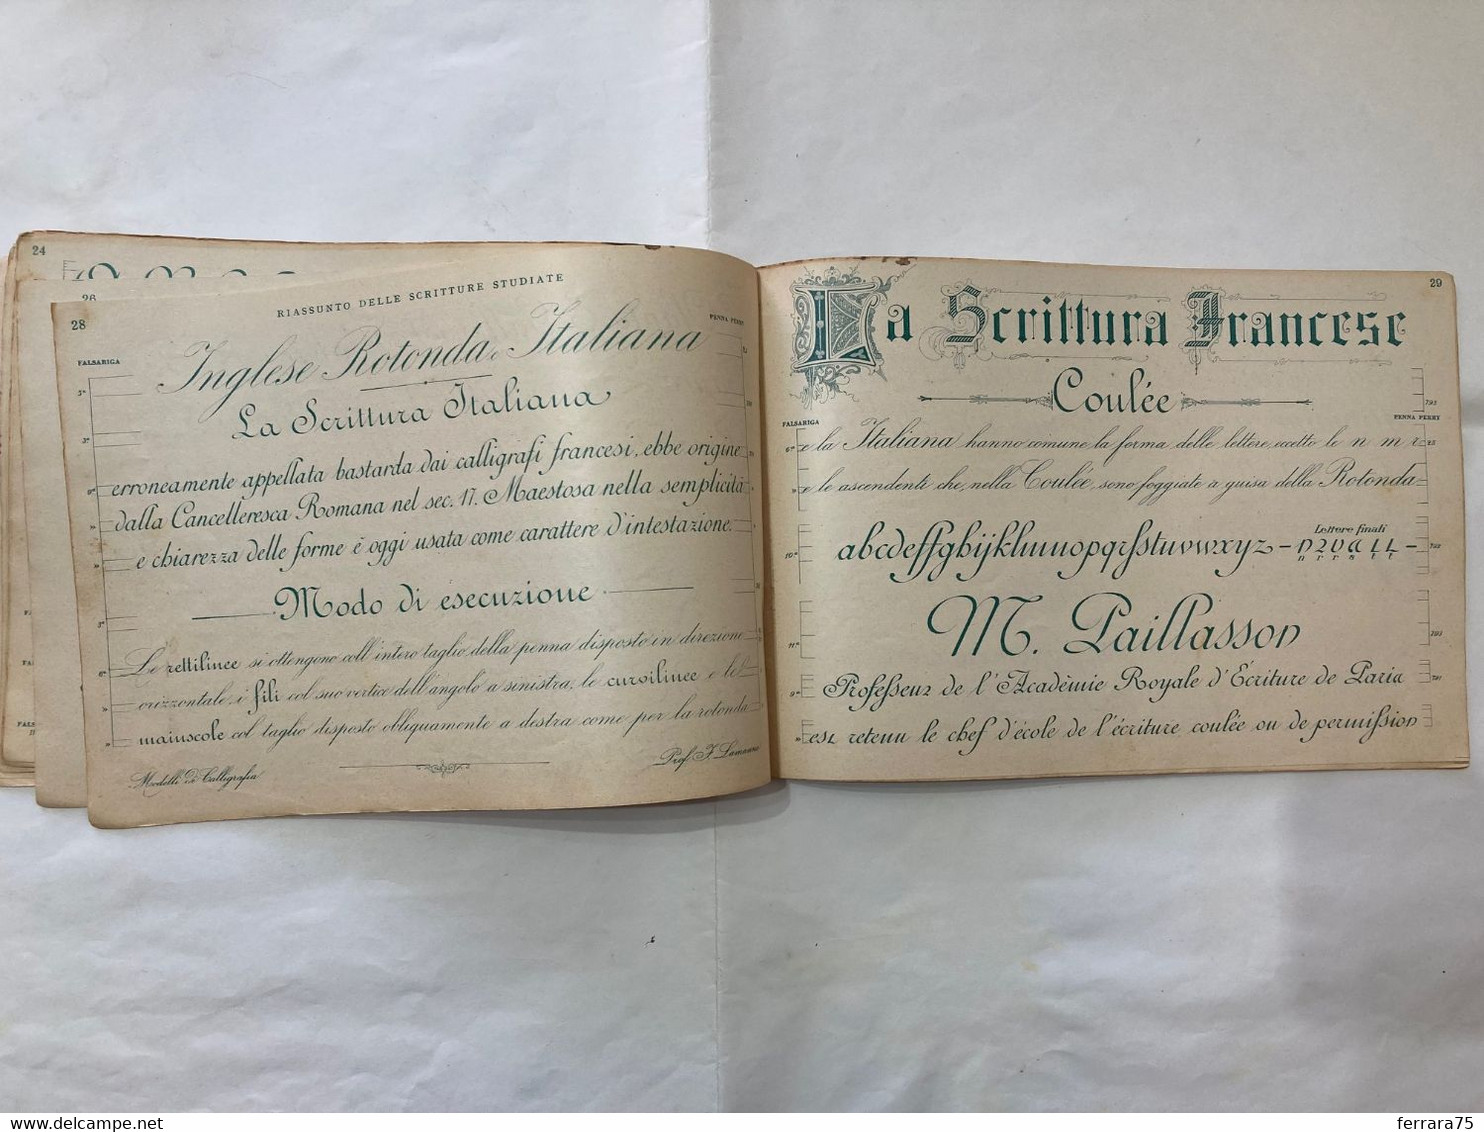 24
26
28
RIASSUNTO DELLE SCRITTURE STUDIATE
FALSARIGA
PENNA PERRY
Inglese Rotonda e Italiana
La Scrittura Italiana
erroneamente appellata bastarda dai calligrafi francesi, ebbe origine
dalla Cancelleresca Romana nel sec. 17. Maestosa nella semplicità
e chiarezza delle forme è oggi usata come carattere d'intestazione.
Modo di esecuzione
Le rettilinee si ottengono coll'intero taglio della penna disposto in direzione
orizzontale, i fili col suo vertice dell'angolo a sinistra, le curvilinee e le
maiuscole col taglio disposto obliquamente a destra come per la rotonda
Modelli di Calligrafia
Prof. F. Lamanno
29
La Scrittura Francese
Coulée
FALSARIGA
PENNA PERRY
e la Italiana hanno comune la forma delle lettere, eccetto le n m r
e le ascendenti che, nella Coulée, sono foggiate a guisa della Rotonda
Lettere finali
abcdeffghijklmnopqrſstuvwxyz
n r r s t t
M. Paillasson
Professeur de l'Académie Royale d'Écriture de Paris
est retenu le chef d'école de l'écriture coulée ou de permiſsion
ferrara75